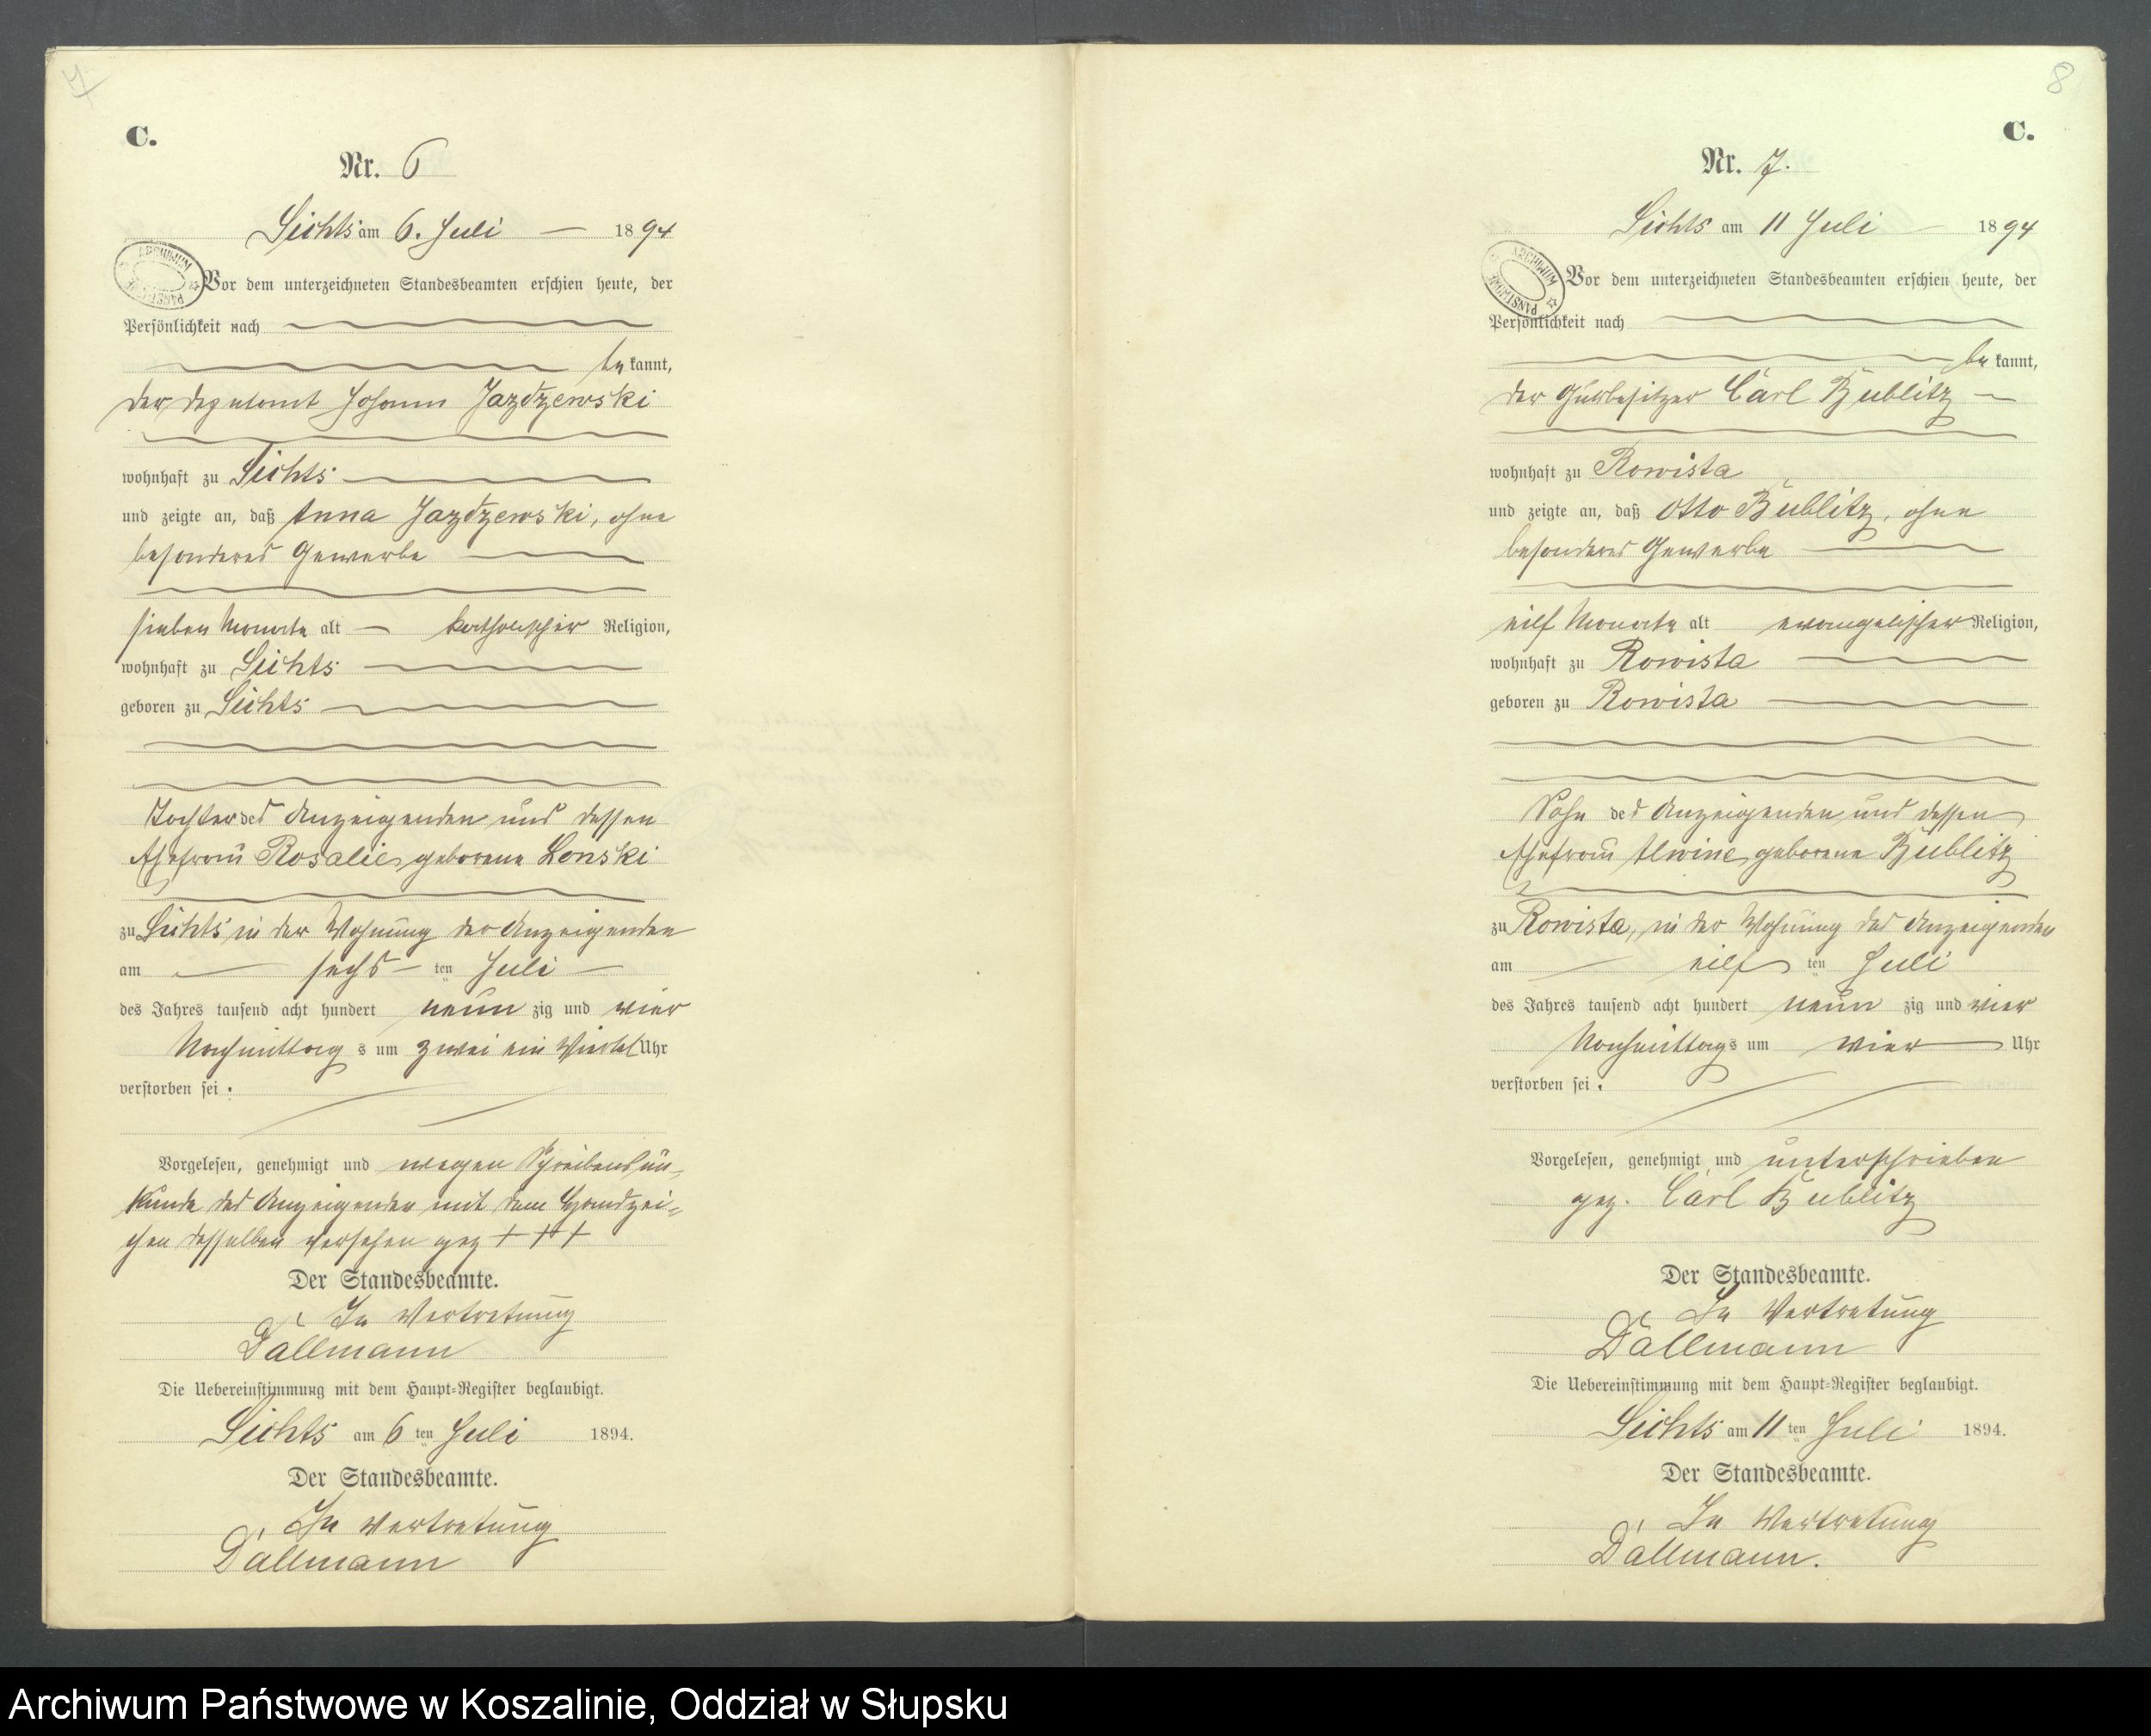 7
C.
Nr. 6
Lichts am 6. Juli 1894
ARCHIWUM PAŃSTWOWE
Vor dem unterzeichneten Standesbeamten erschien heute, der
Persönlichkeit nach
be kannt,
der Deputant Johann Jazdzewski
wohnhaft zu Lichts
und zeigte an, daß Anna Jazdzewski, ohne
besonderes Gewerbe
sieben Monate alt katholischer Religion,
wohnhaft zu Lichts
geboren zu Lichts
Tochter des Anzeigenden und dessen
Ehefrau Rosalie, geborene Lonski
zu Lichts in der Wohnung des Anzeigenden
am sechs ten Juli
des Jahres tausend acht hundert neun zig und vier
Nachmittag s um zwei ein Viertel Uhr
verstorben sei.
Vorgelesen, genehmigt und wegen Schreibensun-
kunde des Anzeigenden mit dem Handzei-
chen desselben versehen gez + + +
Der Standesbeamte.
In Vertretung
Dallmann
Die Uebereinstimmung mit dem Haupt-Register beglaubigt.
Lichts am 6 ten Juli 1894.
Der Standesbeamte.
In Vertretung
Dallmann
8
C.
Nr. 7.
Lichts am 11 Juli 1894
ARCHIWUM PAŃSTWOWE
Vor dem unterzeichneten Standesbeamten erschien heute, der
Persönlichkeit nach
be kannt,
der Gutsbesitzer Carl Bublitz
wohnhaft zu Rowista
und zeigte an, daß Otto Bublitz, ohne
besonderes Gewerbe
eilf Monate alt evangelischer Religion,
wohnhaft zu Rowista
geboren zu Rowista
Sohn des Anzeigenden und dessen
Ehefrau Alwine, geborene Bublitz
zu Rowista, in der Wohnung des Anzeigenden
am eilf ten Juli
des Jahres tausend acht hundert neun zig und vier
Nachmittag s um vier Uhr
verstorben sei.
Vorgelesen, genehmigt und unterschrieben
gez. Carl Bublitz
Der Standesbeamte.
In Vertretung
Dallmann
Die Uebereinstimmung mit dem Haupt-Register beglaubigt.
Lichts am 11 ten Juli 1894.
Der Standesbeamte.
In Vertretung
Dallmann.
Archiwum Państwowe w Koszalinie, Oddział w Słupsku